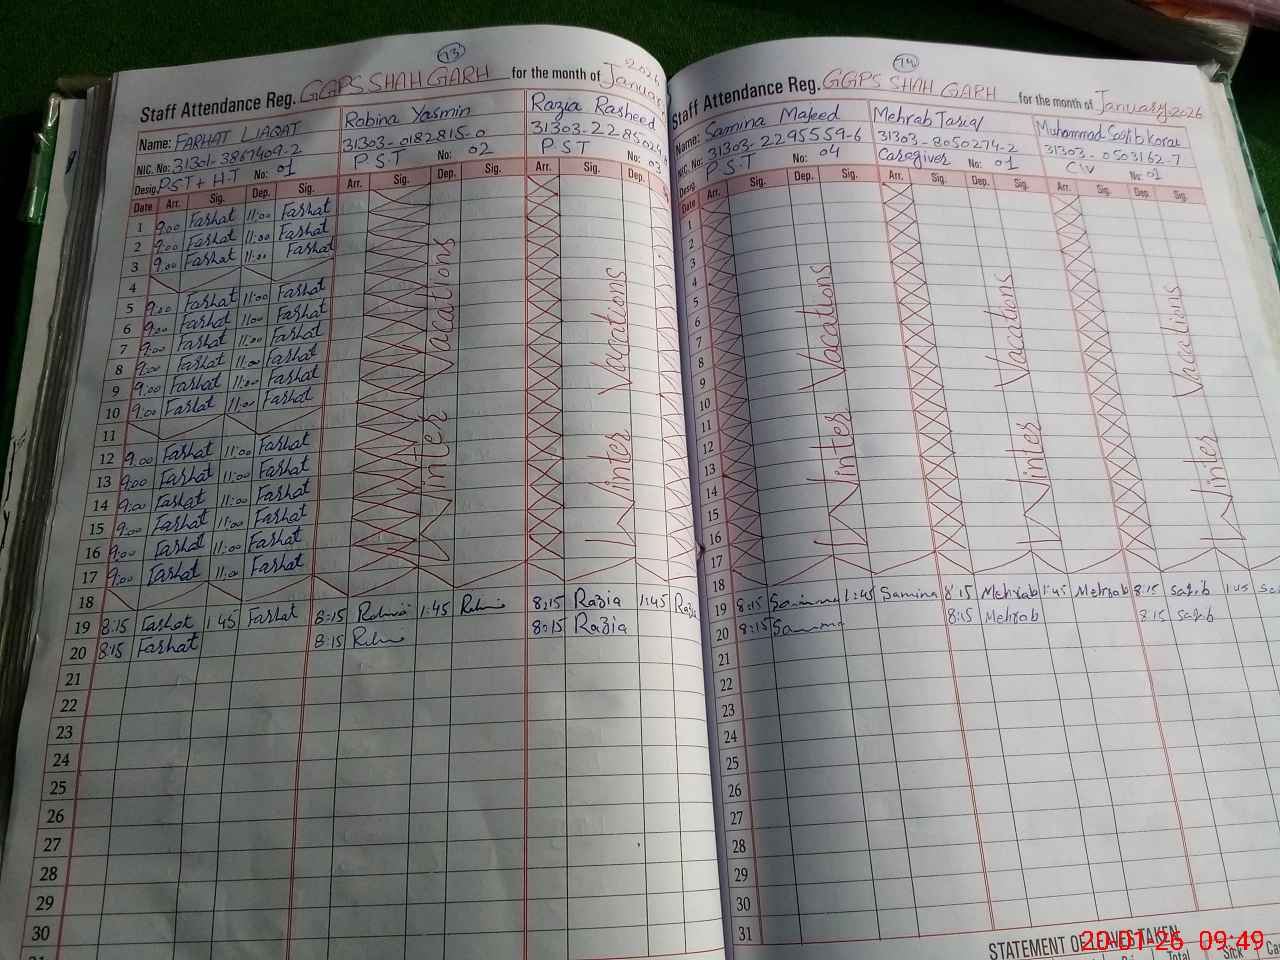 73
Staff Attendance Reg. GGPS SHAH GARH for the month of January 2026
Name: FARHAT LIAQAT Robina Yasmin Razia Rasheed
NIC. No: 31301-3867409-2 31303-0182815-0
Desig. P.S.T + H.T No: 01 P.S.T No: 02 P.S.T No: 03
Date Arr. Sig. Dep. Sig. Arr. Sig. Dep. Sig. Arr. Sig. Dep.
1 9:00 Farhat 11:00 Farhat
2 9:00 Farhat 11:00 Farhat
3 9:00 Farhat 11:00 Farhat
4
5 9:00 Farhat 11:00 Farhat
6 9:00 Farhat 11:00 Farhat
7 9:00 Farhat 11:00 Farhat
8 9:00 Farhat 11:00 Farhat
9 9:00 Farhat 11:00 Farhat
10 9:00 Farhat 11:00 Farhat
11
12 9:00 Farhat 11:00 Farhat
13 9:00 Farhat 11:00 Farhat
14 9:00 Farhat 11:00 Farhat
15 9:00 Farhat 11:00 Farhat
16 9:00 Farhat 11:00 Farhat
17 9:00 Farhat 11:00 Farhat
Winter Vacations
Winter Vacations
18
19 8:15 Farhat 1:45 Farhat 8:15 1:45 8:15 Razia 1:45 Razia
20 8:15 Farhat 8:15 8:15 Razia
21
22
23
24
25
26
27
28
29
30
31
74
Staff Attendance Reg. GGPS SHAH GARH for the month of January, 2026
Name: Samina Majeed Mehrab Tariq Muhammad
NIC. No: 31303-2295559-6 31303-8050274-2 31303-0503162-7
Desig. P.S.T No: 04 Caregiver No: 01 C.IV No 01
Date Arr. Sig. Dep. Sig. Arr. Sig. Dep. Sig. Arr. Sig. Dep. Sig.
1
2
3
4
5
6
7
8
9
10
11
12
13
14
15
16
17
Winter Vacations
Winter Vacations
Winter Vacations
18
19 8:15 Samina 1:45 Samina 8:15 Mehrab 1:45 Mehrab 8:15 1:45
20 8:15 Samina 8:15 Mehrab 8:15
21
22
23
24
25
26
27
28
29
30
31
STATEMENT OF LEAVES TAKEN
Total Sick
20-01-26 09:49